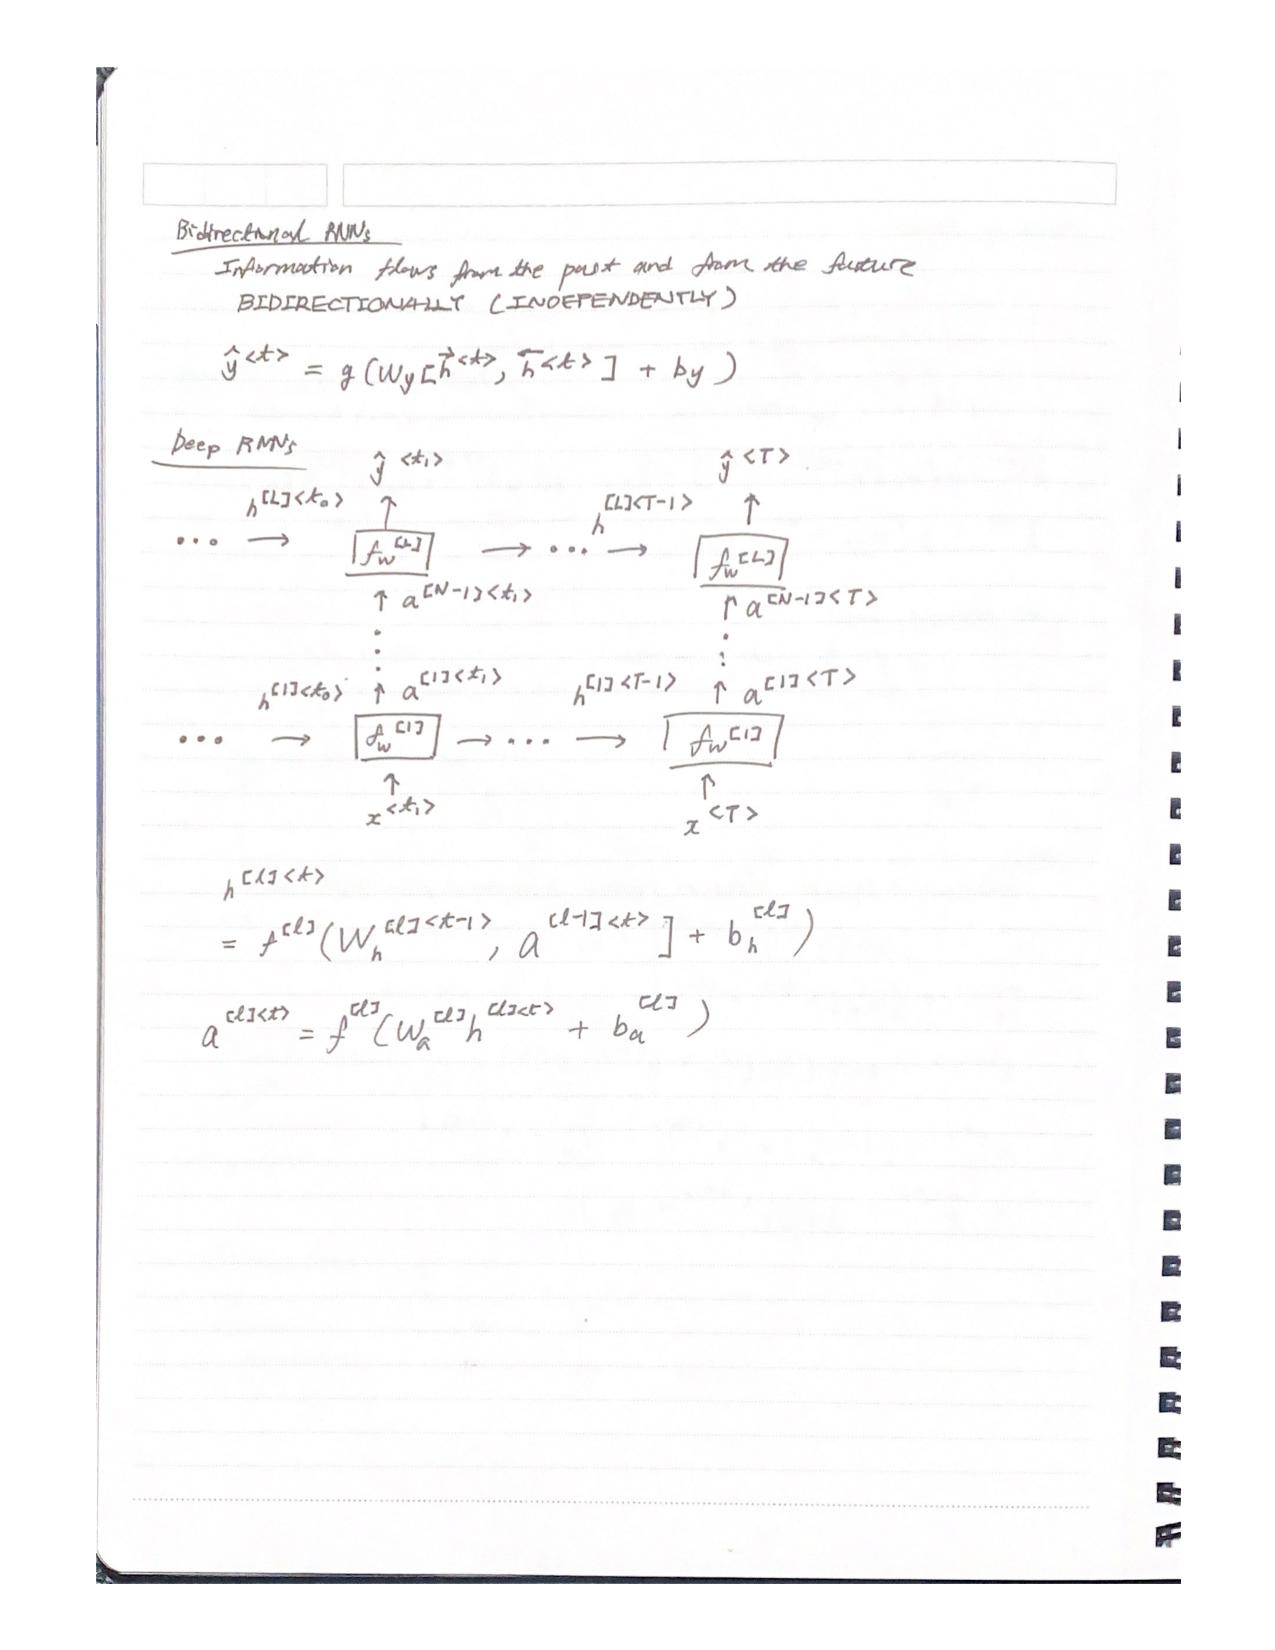 Bidirectional RNNs
Information flows from the past and from the future
BIDIRECTIONALLY (INDEPENDENTLY)
ŷ^<t> = g(W_y[h→^<t>, h←^<t>] + b_y)
Deep RNNs
ŷ^<t₁> ŷ^<T>
h^[L]<t₀> ↑ h^[L]<T-1> ↑
... → f_w^[L] → ... → f_w^[L]
↑ a^[N-1]<t₁> ↑ a^[N-1]<T>
⋮ ⋮
h^[1]<t₀> ↑ a^[1]<t₁> h^[1]<T-1> ↑ a^[1]<T>
... → f_w^[1] → ... → f_w^[1]
↑ ↑
x^<t₁> x^<T>
h^[l]<t>
= f^[l](W_h^[l]<t-1>, a^[l-1]<t>] + b_h^[l])
a^[l]<t> = f^[l](W_a^[l]h^[l]<t> + b_a^[l])